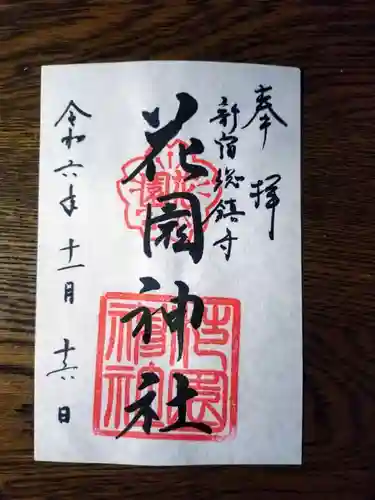 奉拝
新宿総鎮守
花園神社
花園神社
令和六年十一月十六日